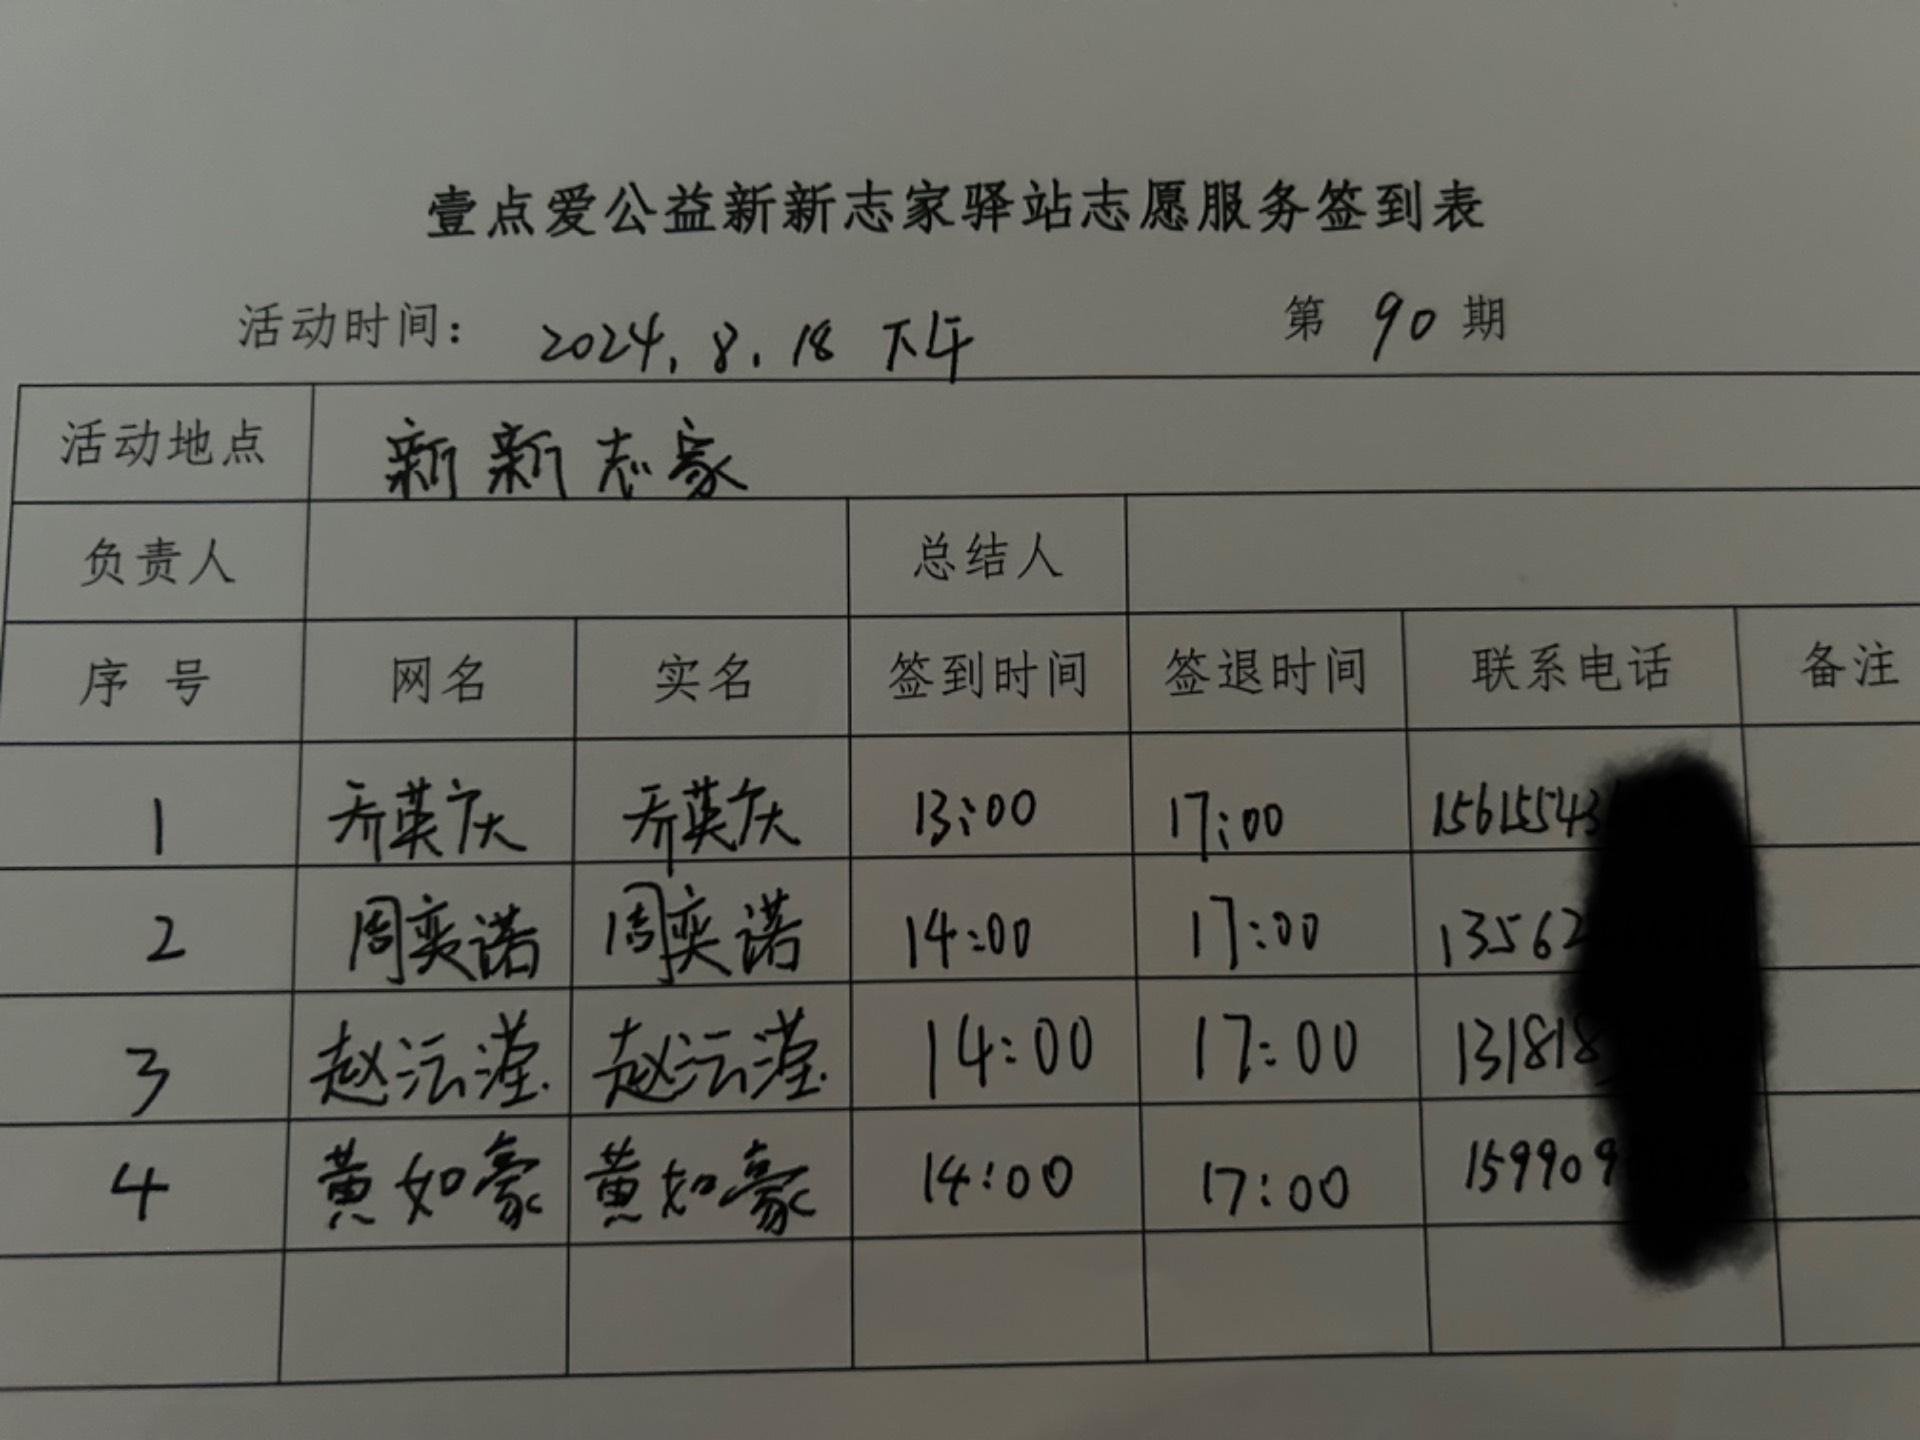 壹点爱公益新新志家驿站志愿服务签到表
活动时间： 2024.8.18 下午 第 90 期
活动地点 新新志家
负责人 总结人
序号 网名 实名 签到时间 签退时间 联系电话 备注
1 乔英庆 乔英庆 13:00 17:00 15615543
2 周奕诺 周奕诺 14:00 17:00 13562
3 赵沄滢 赵沄滢 14:00 17:00 131818
4 黄如豪 黄如豪 14:00 17:00 159909